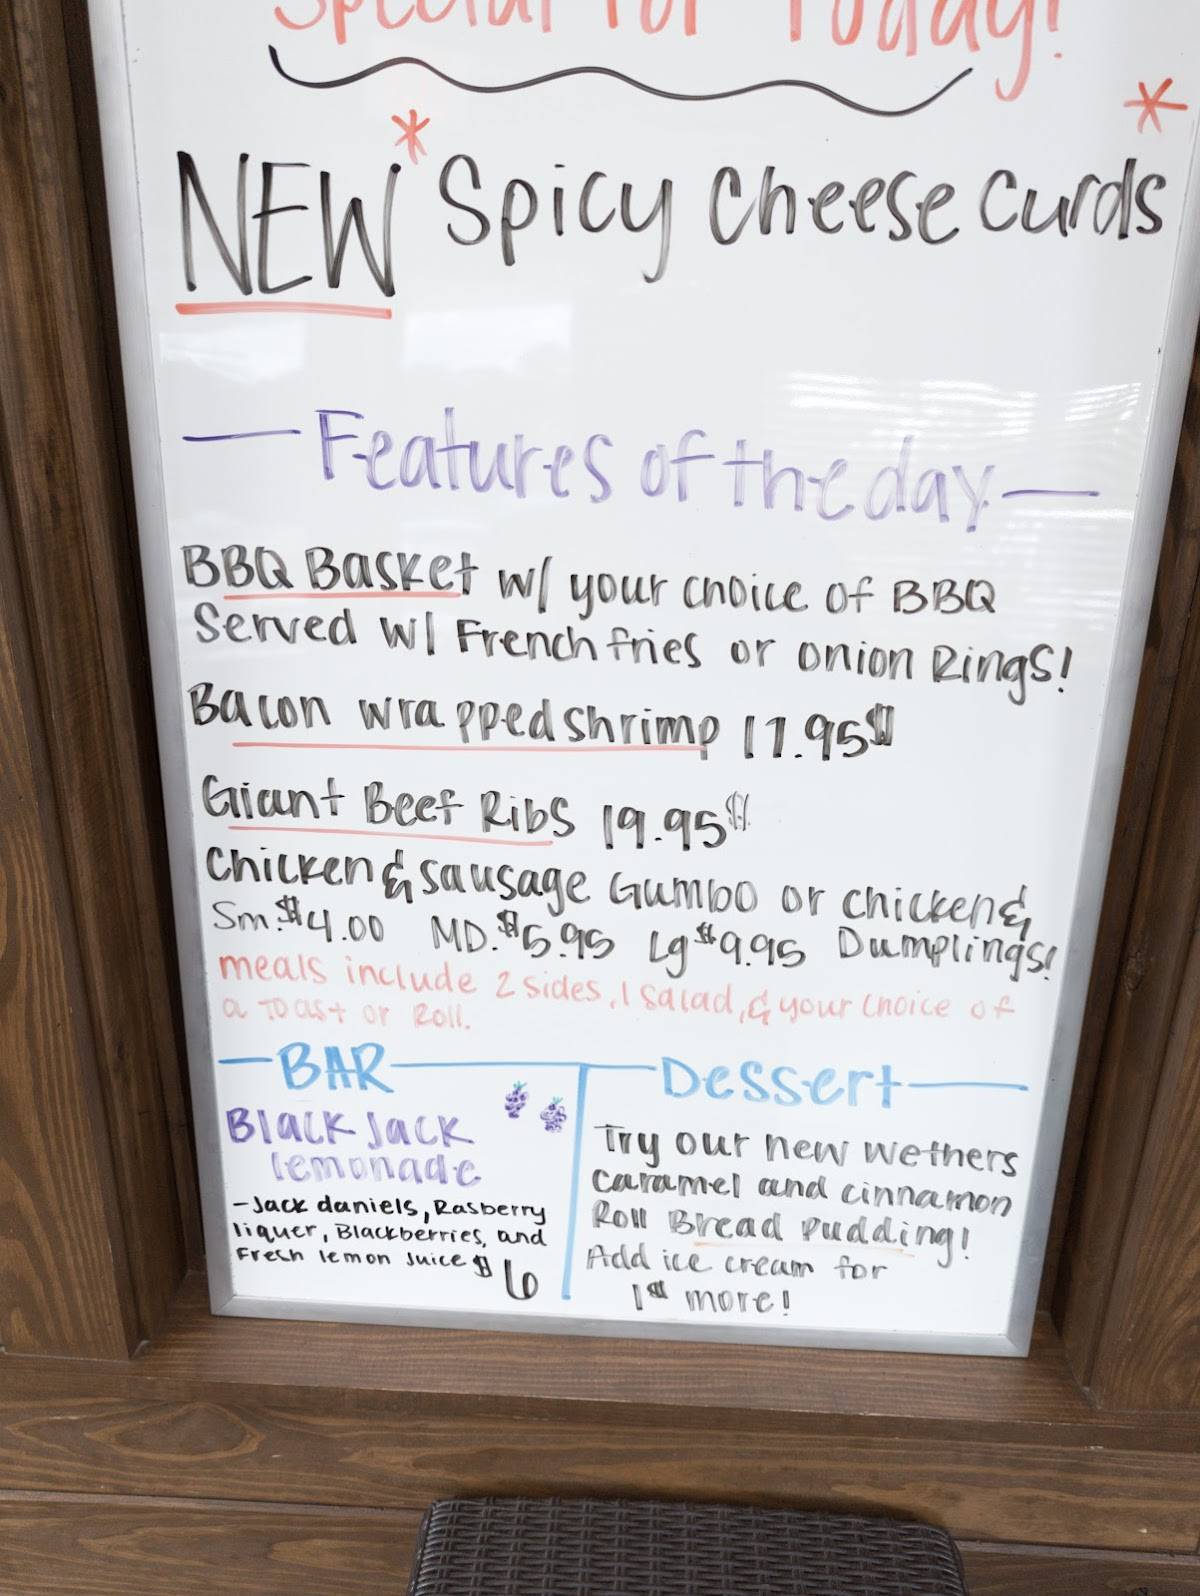 Special for Today!
NEW * Spicy Cheese Curds *
Features of the day
BBQ Basket w/ your choice of BBQ
Served w/ French fries or onion Rings!
Bacon wrapped shrimp 17.95$
Giant Beef Ribs 19.95$
Chicken & sausage Gumbo or chicken &
Sm.$4.00 MD.$5.95 Lg $9.95 Dumplings!
meals include 2 sides, 1 salad, & your choice of
a Toast or Roll.
BAR
Black Jack
lemonade
-Jack daniels, Rasberry
liquer, Blackberries, and
Fresh lemon Juice $6
Dessert
Try our new wethers
caramel and cinnamon
Roll Bread pudding!
Add ice cream for
1$ more!